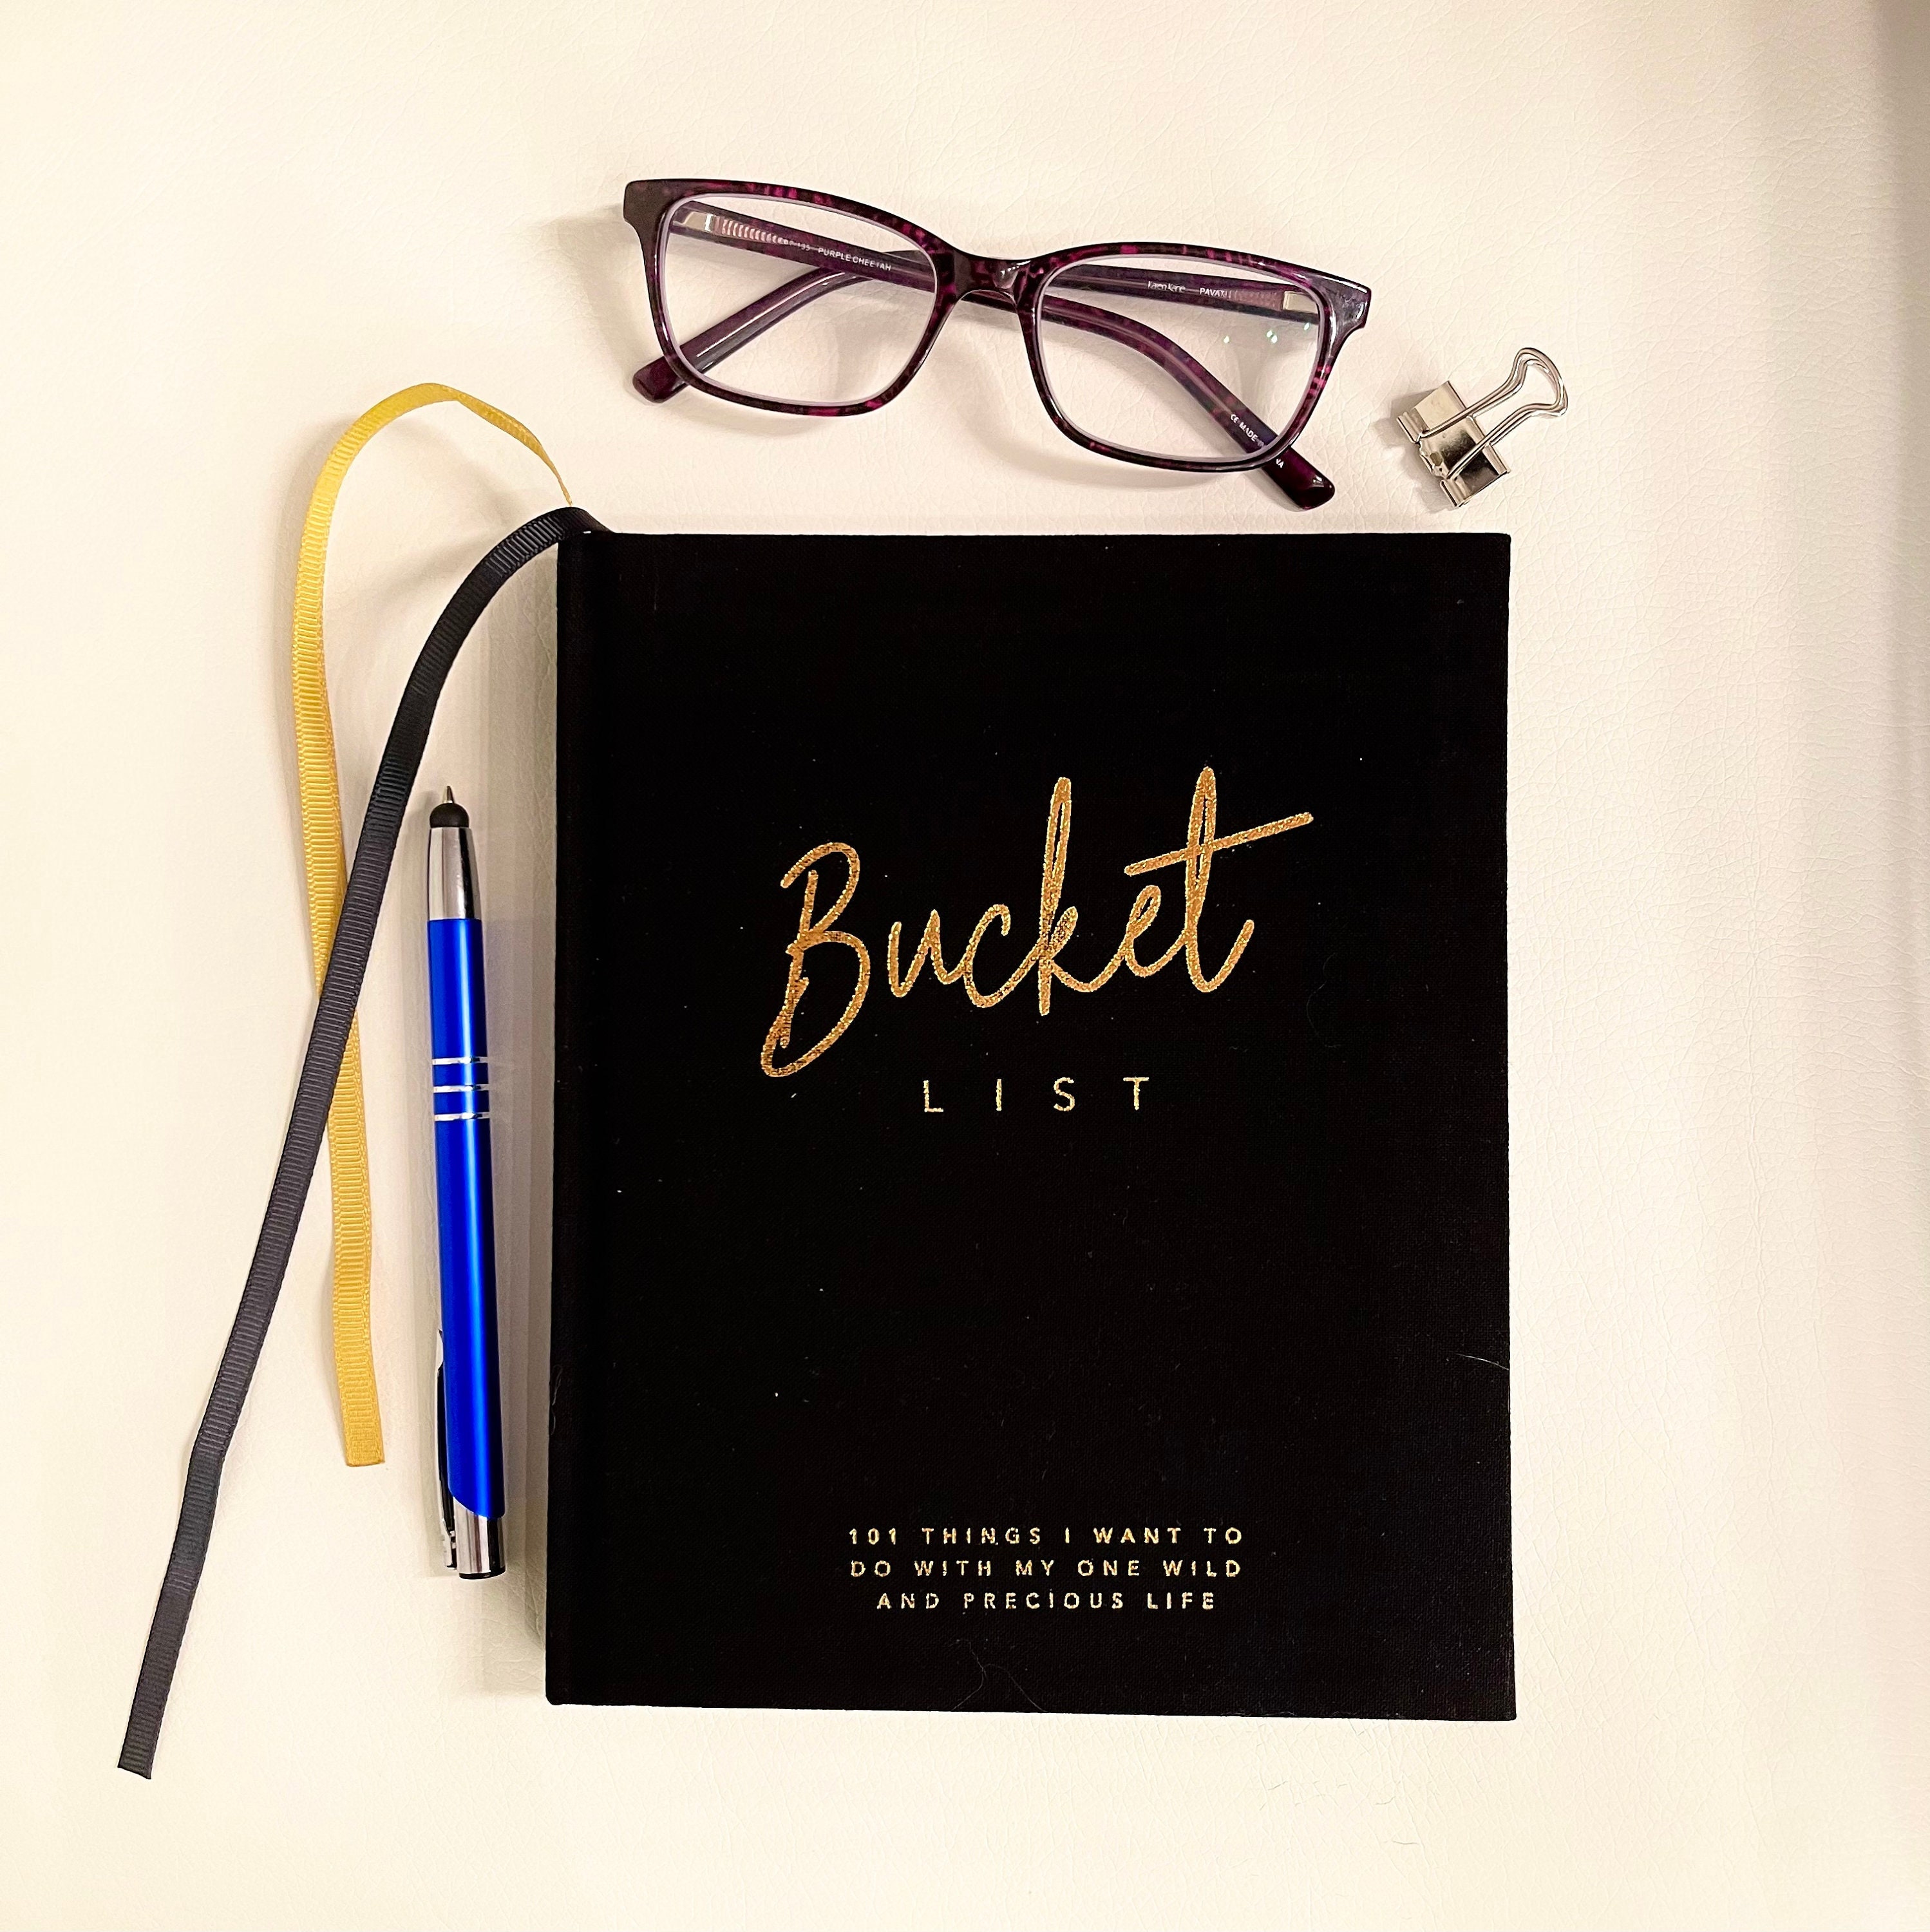 PURPLE CHEETAH
Karen Kane PAVATI
CE MADE
Bucket
LIST
101 THINGS I WANT TO
DO WITH MY ONE WILD
AND PRECIOUS LIFE